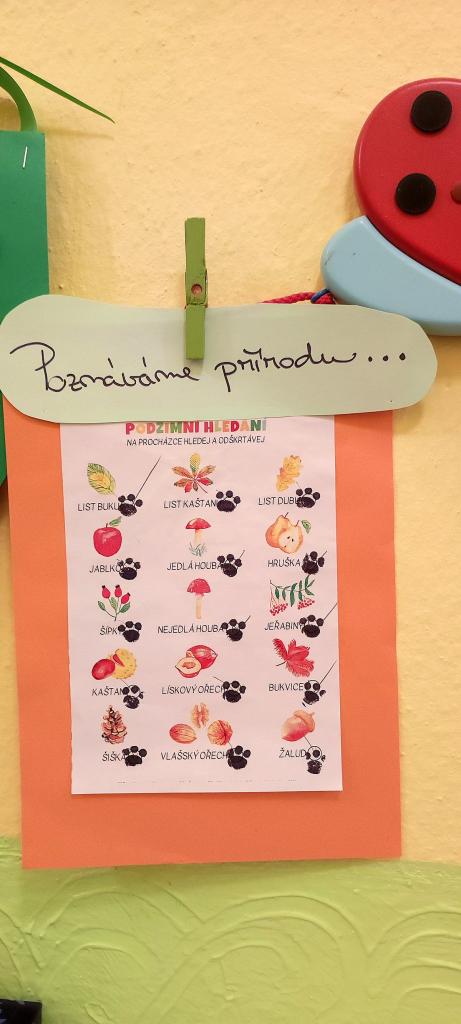 Poznáváme přírodu...
PODZIMNÍ HLEDÁNÍ
NA PROCHÁZCE HLEDEJ A ODŠKRTÁVEJ
LIST BUKU LIST KAŠTAN LIST DUBU
JABLKO JEDLÁ HOUBA HRUŠKA
ŠÍPK NEJEDLÁ HOUBA JEŘABIN
KAŠTAN LÍSKOVÝ OŘECH BUKVICE
ŠIŠKA VLAŠSKÝ OŘECH ŽALUD